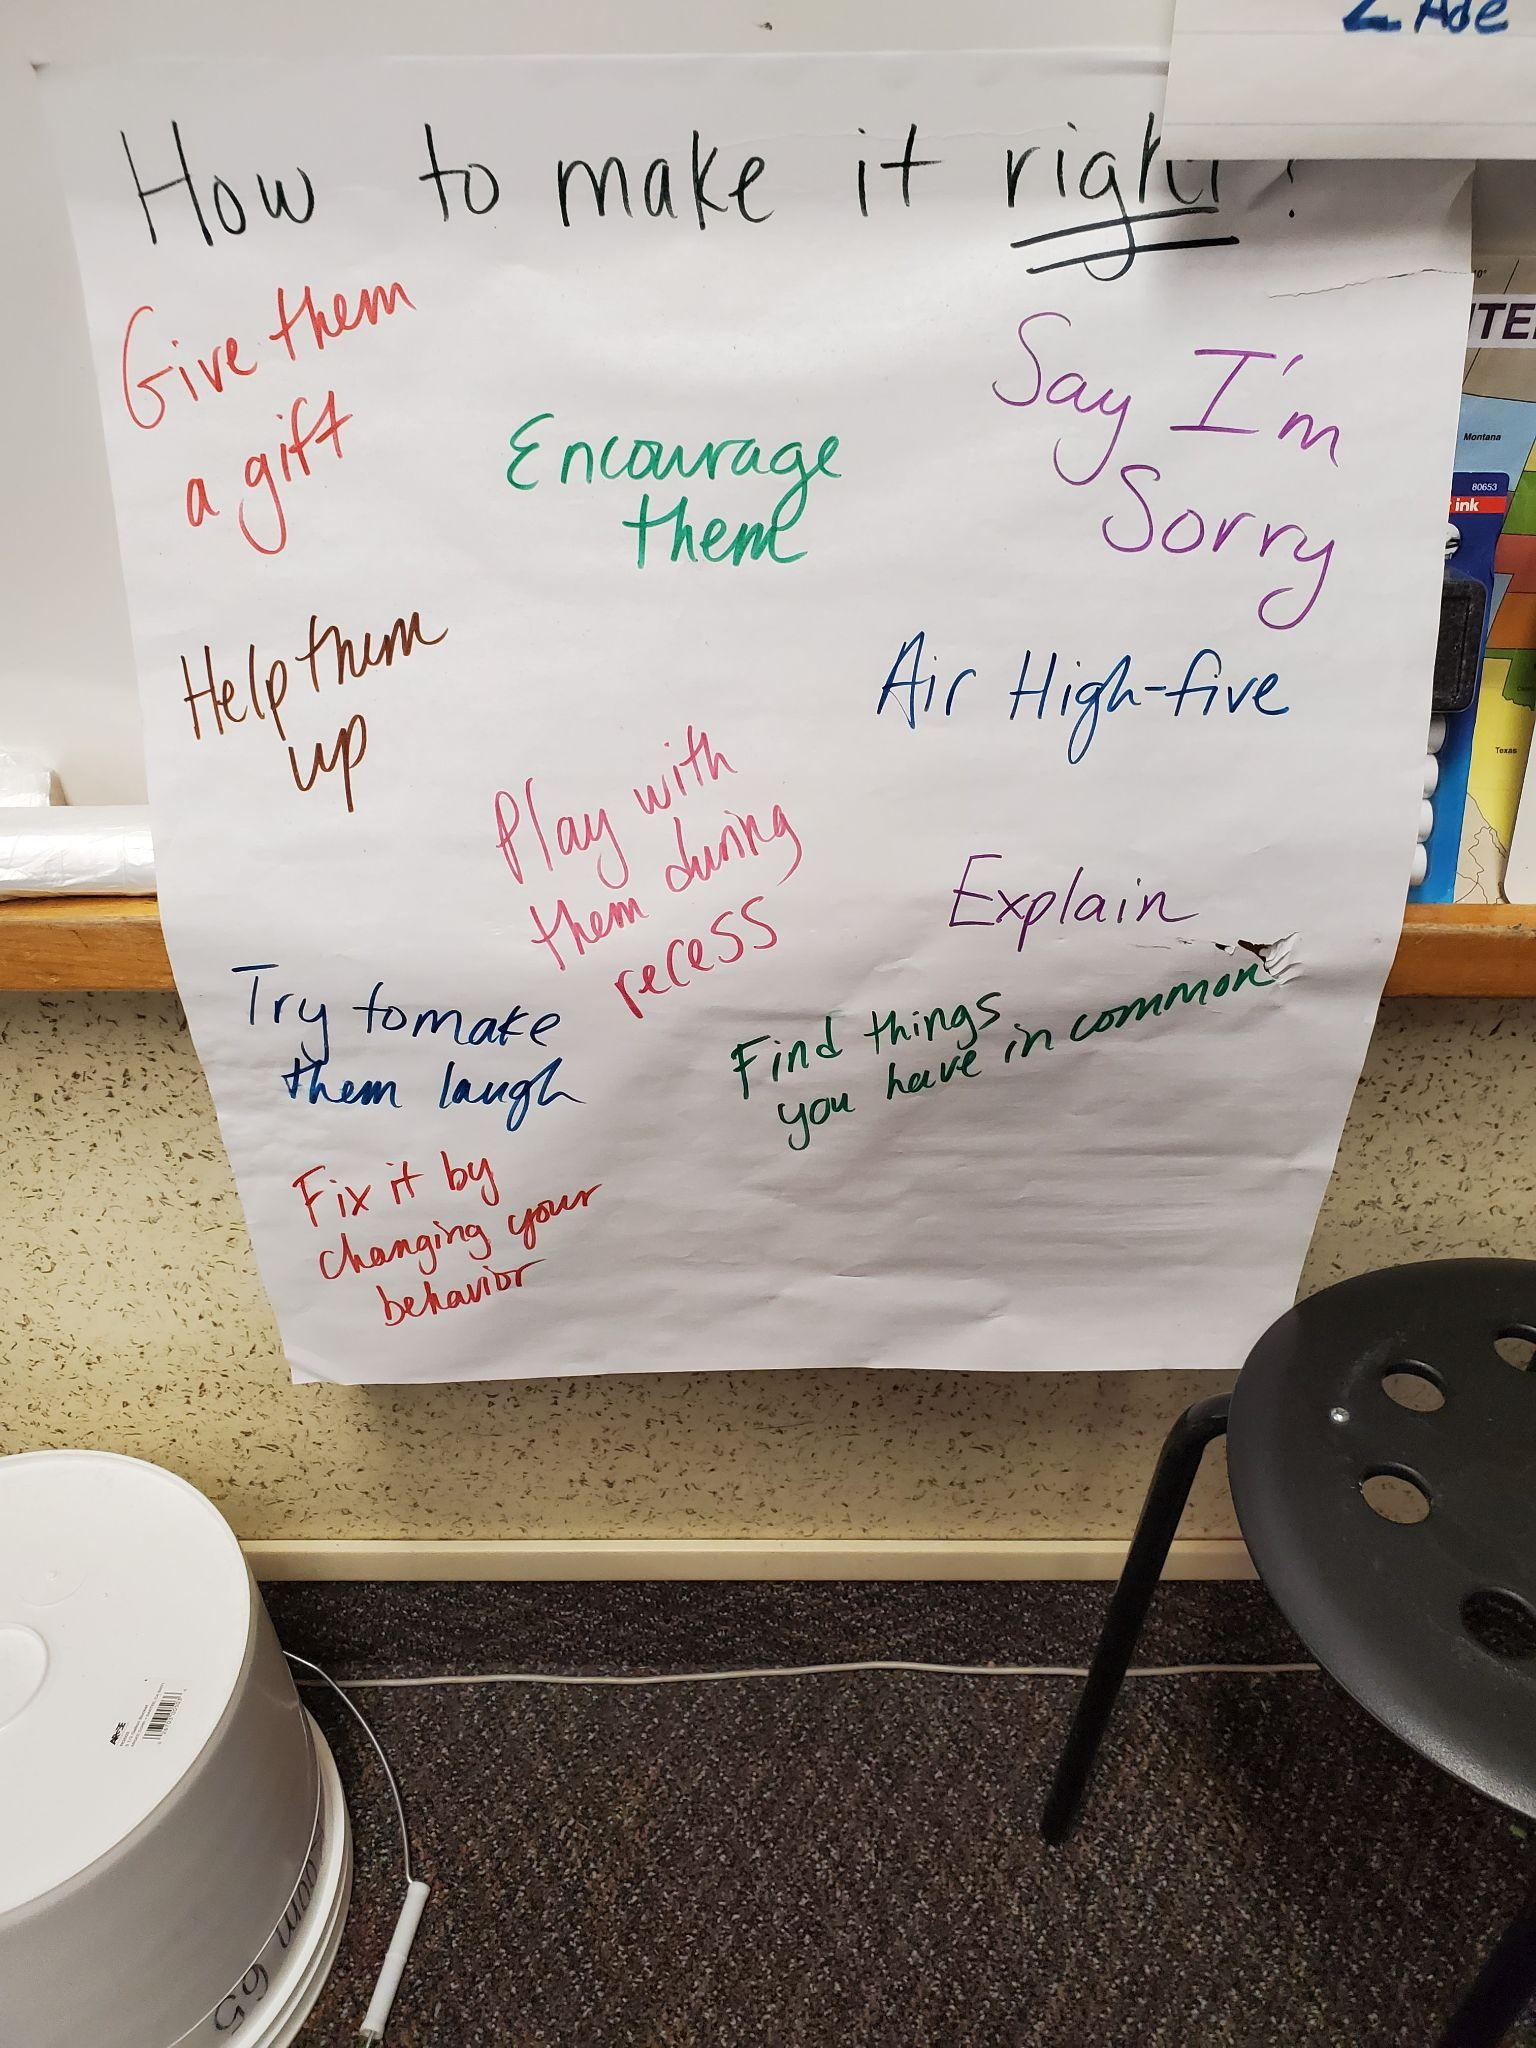 2 Ade
How to make it right?
Give them
a gift
Encourage
them
Say I'm
Sorry
Help them
up
Air High-five
Play with
them during
recess
Explain
Try to make
them laugh
Find things
you have in common
Fix it by
changing your
behavior
10°
Montana
80653
ink
Texas
65